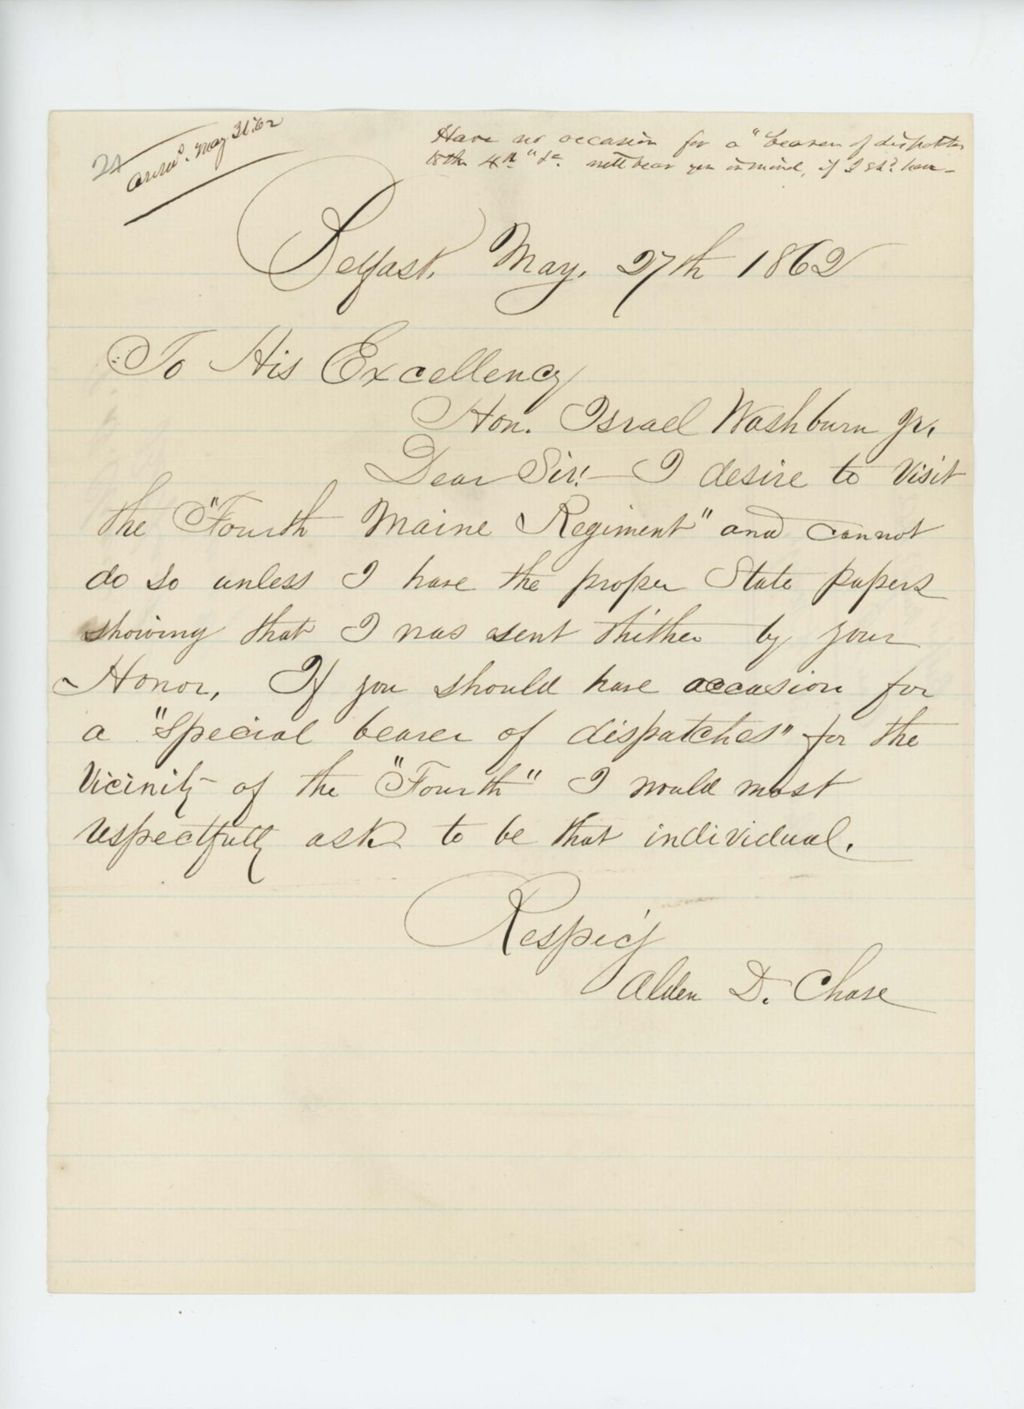 24
answd. May 31. 62
Have no occasion for a "bearer of dispatches
to the 4th" &c. will bear you in mind, if I shd. have—
Belfast. May. 27th 1862
To His Excellency
Hon. Israel Washburn Jr.
Dear Sir! — I desire to visit
the "Fourth Maine Regiment" and cannot
do so unless I have the proper State papers
showing that I was sent thither by your
Honor, If you should have occasion for
a "special bearer of dispatches" for the
vicinity of the "Fourth" I would most
respectfully ask to be that individual.
Respec'y
Alden D. Chase